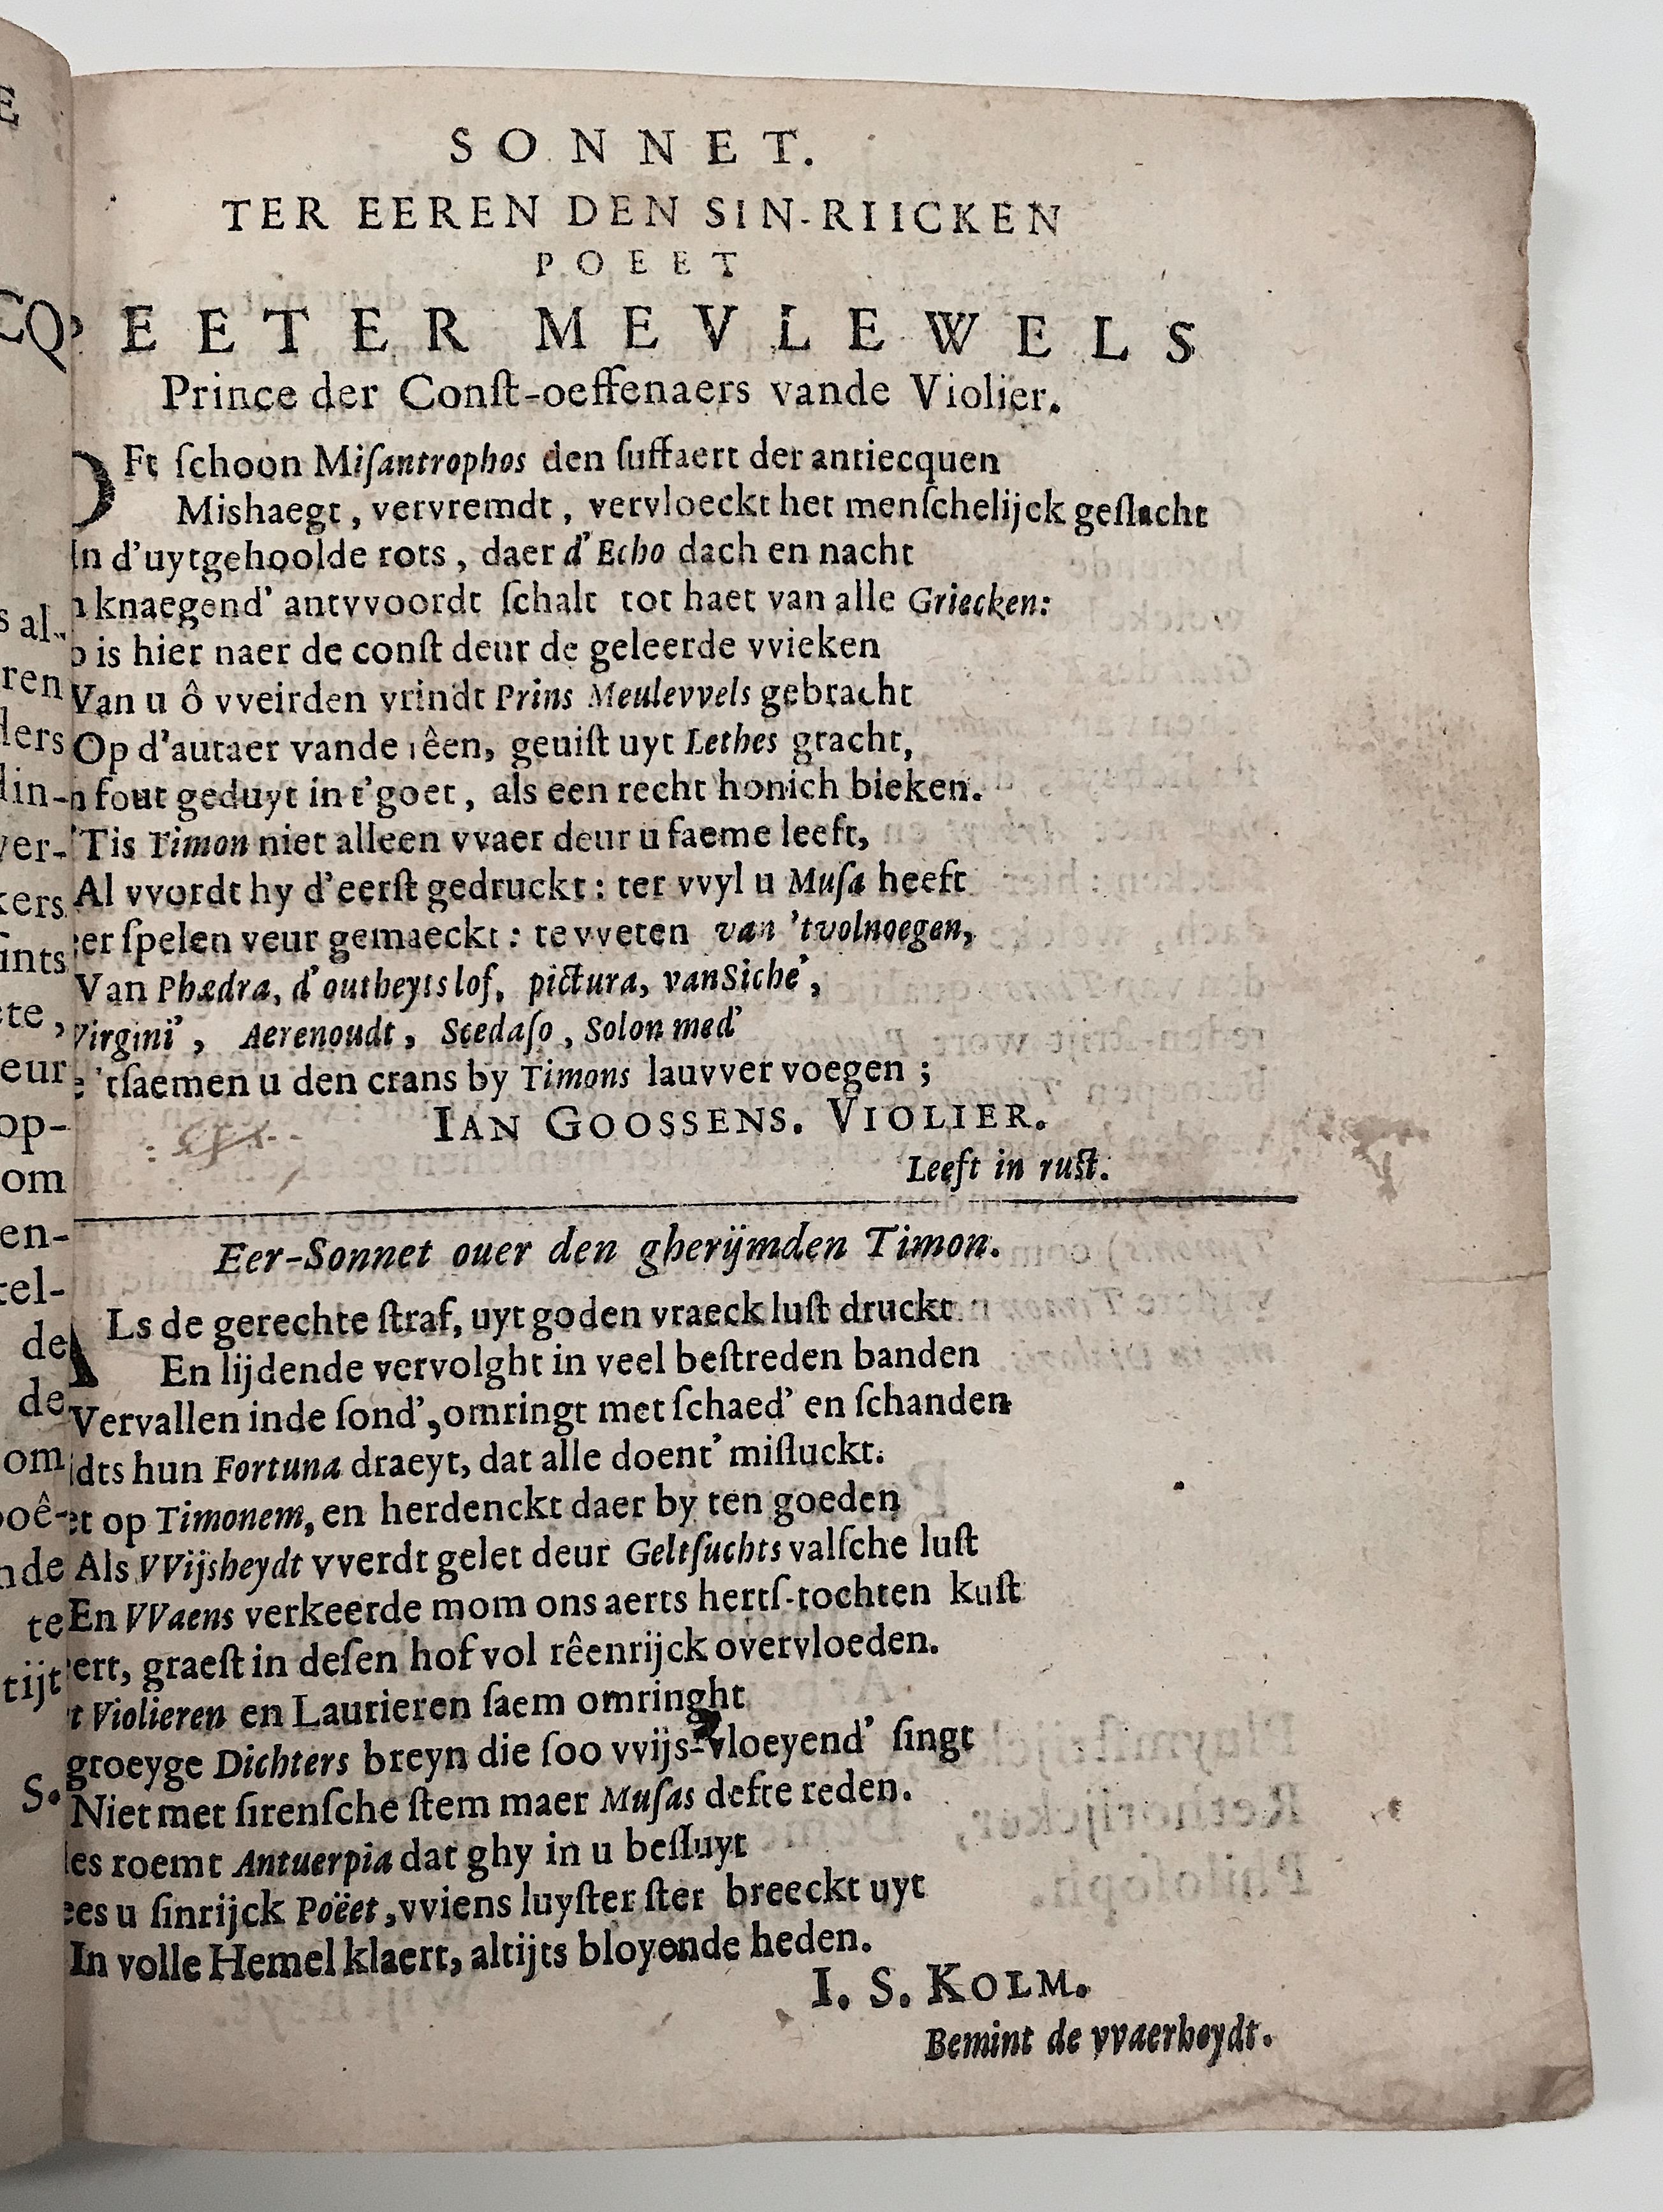 E
CQ
s al-
ren
ders
lin-
ver-
kers
sints
ete,
eur
op-
om
en-
tel-
de
de
om
poê-
nde
te
tijt
S.
SONNET.
TER EEREN DEN SIN-RIICKEN
POEET
PEETER MEVLEWELS
Prince der Conſt-oeffenaers vande Violier.
OFt ſchoon Miſantrophos den ſuffaert der antiecquen
Mishaegt, vervremdt, vervloeckt het menſchelijck geſlacht
In d'uytgehoolde rots, daer d'Echo dach en nacht
knaegend' antvvoordt ſchalt tot haet van alle Griecken:
is hier naer de conſt deur de geleerde vvieken
Van u ô vveirden vrindt Prins Meulevvels gebracht
Op d'autaer vande rêen, geuiſt uyt Lethes gracht,
fout geduyt in t'goet, als een recht honich bieken.
'Tis Timon niet alleen vvaer deur u faeme leeft,
Al vvordt hy d'eerſt gedruckt: ter vvyl u Muſa heeft
er ſpelen veur gemaeckt: te vveten van 'tvolnoegen,
Van Phædra, d'outheyts lof, pictura, van Siche',
Virgini', Aerenoudt, Scedaſo, Solon med'
'tſaemen u den crans by Timons lauvver voegen;
IAN GOOSSENS. VIOLIER.
Leeft in ruſt.
Eer-Sonnet ouer den gherijmden Timon.
ALs de gerechte ſtraf, uyt goden vraeck luſt druckt
En lijdende vervolght in veel beſtreden banden
Vervallen inde ſond', omringt met ſchaed' en ſchanden
dts hun Fortuna draeyt, dat alle doent' miſluckt.
et op Timonem, en herdenckt daer by ten goeden
Als VVijsheydt vverdt gelet deur Geltſuchts valſche luſt
En VVaens verkeerde mom ons aerts hertſ-tochten kuſt
ert, graeſt in deſen hof vol rêenrijck overvloeden.
t Violieren en Laurieren ſaem omringht
groeyge Dichters breyn die ſoo vvijs-vloeyend' ſingt
Niet met ſirenſche ſtem maer Muſas defte reden.
es roemt Antuerpia dat ghy in u beſluyt
ees u ſinrijck Poëet, vviens luyſter ſter breeckt uyt
In volle Hemel klaert, altijts bloyende heden.
I. S. KOLM.
Bemint de vvaerheydt.